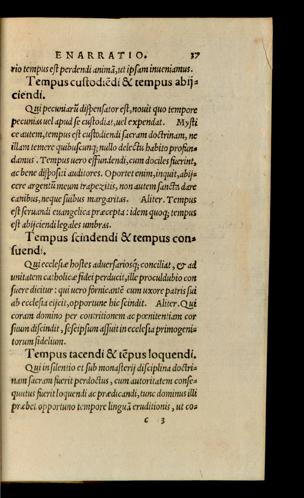 ENARRATIO. 37
rio tempus est perdendi animā, ut ipsam inueniamus.
Tempus custodiēdi & tempus abij-
ciendi.
Qui pecuniarū dispensator est, nouit quo tempore
pecunias uel apud se custodiat, uel expendat. Mysti
ce autem, tempus est custodiendi sacram doctrinam, ne
illam temere quibuscunq; nullo delectu habito profun-
damus. Tempus uero effundendi, cum dociles fuerint,
ac bene dispositi auditores. Oportet enim, inquit, abij-
cere argentū meum trapezitis, non autem sancta dare
canibus, neque suibus margaritas. Aliter. Tempus
est seruandi euangelica præcepta: idem quoq; tempus
est abijciendi legales umbras.
Tempus scindendi & tempus con-
suendi.
Qui ecclesiæ hostes aduersariosq; conciliat, & ad
unitatem catholicæ fidei perducit, ille proculdubio con
suere dicitur: qui uero fornicantē cum uxore patris sui
ab ecclesia eijcit, opportune hic scindit. Aliter. Qui
coram domino per contritionem ac pœnitentiam cor
suum discindit, seseipsum assuit in ecclesia primogeni-
torum fidelium.
Tempus tacendi & tēpus loquendi.
Qui in silentio et sub monasterij disciplina doctri-
nam sacram fuerit perdoctus, cum autoritatem conse-
quutus fuerit loquendi ac prædicandi, tunc dominus illi
præbet opportuno tempore linguā eruditionis, ut co-
c 3